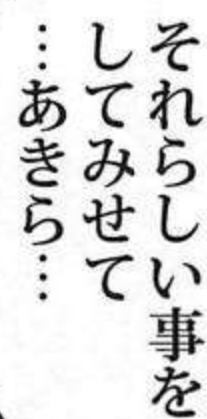 それらしい事を
してみせて
…あきら…